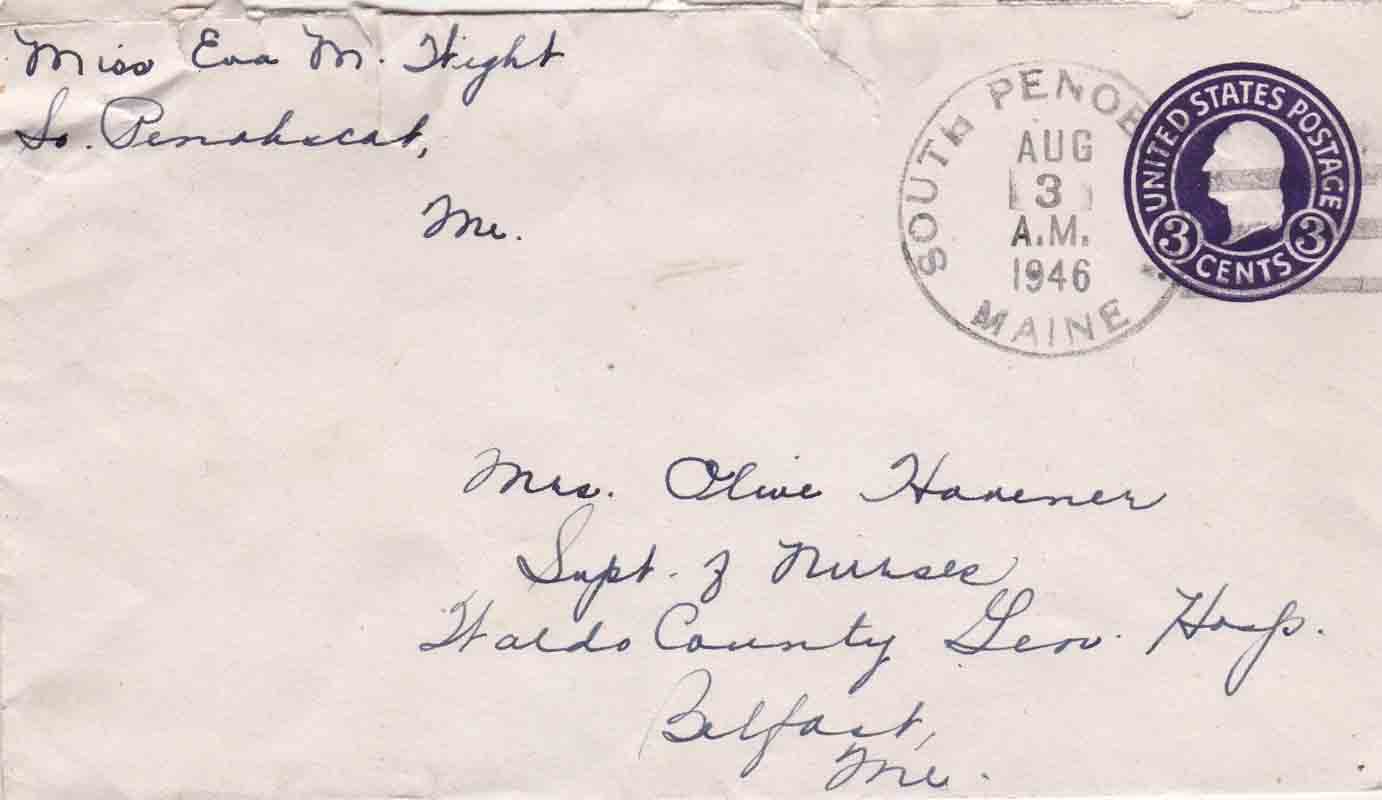 Miss Eva M. Wight
So. Penobscot,
Me.
SOUTH PENOB
AUG
3
A.M.
1946
MAINE
UNITED STATES POSTAGE
3 3
CENTS
Mrs. Olive Havener
Supt. of Nurses
Waldo County Gen. Hosp.
Belfast,
Me.